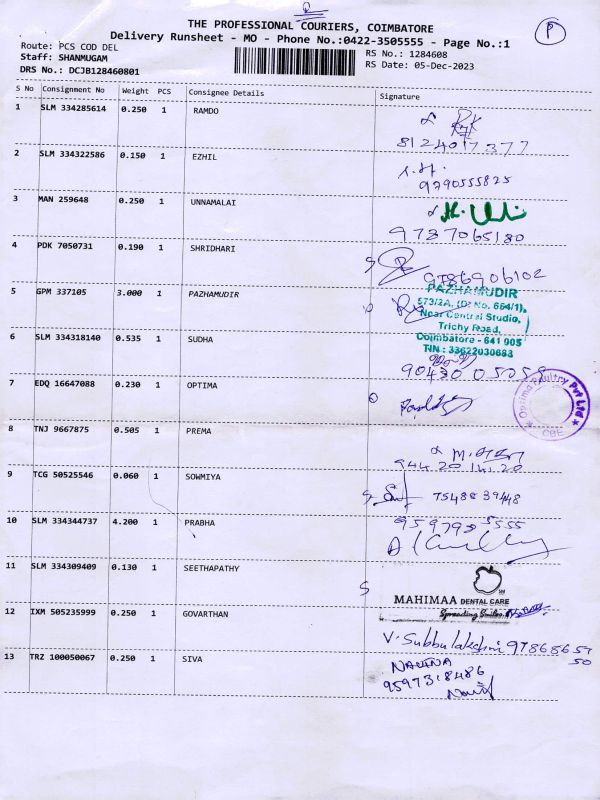 THE PROFESSIONAL COURIERS, COIMBATORE
Delivery Runsheet - MO - Phone No.:0422-3505555 - Page No.:1
P
Route: PCS COD DEL
RS No.: 1284608
Staff: SHANMUGAM
RS Date: 05-Dec-2023
DRS No.: DCJB128460801
S No Consignment No Weight PCS Consignee Details Signature
1 SLM 334285614 0.250 1 RAMDO
8124017377
2 SLM 334322586 0.150 1 EZHIL
9790555825
3 MAN 259648 0.250 1 UNNAMALAI
9787065180
4 PDK 7050731 0.190 1 SHRIDHARI
9786906102
5 GPM 337105 3.000 1 PAZHAMUDIR
PAZHAMUDIR
573/2A, (D. No. 664/1),
Near Central Studio,
Trichy Road,
Coimbatore - 641 005
TIN : 33622030683
6 SLM 334318140 0.535 1 SUDHA
90430 05058
7 EDQ 16647088 0.230 1 OPTIMA
Optima Poultry Pvt Ltd
CBE
8 TNJ 9667875 0.505 1 PREMA
944 20 14 20
9 TCG 50525546 0.060 1 SOWMIYA
7548839448
10 SLM 334344737 4.200 1 PRABHA
9597925555
11 SLM 334309409 0.130 1 SEETHAPATHY
MAHIMAA DENTAL CARE
Spreading Smiles
12 IXM 505235999 0.250 1 GOVARTHAN
V. Subbulakshmi 97865657
50
13 TRZ 100050067 0.250 1 SIVA
NAVINA
9597318486